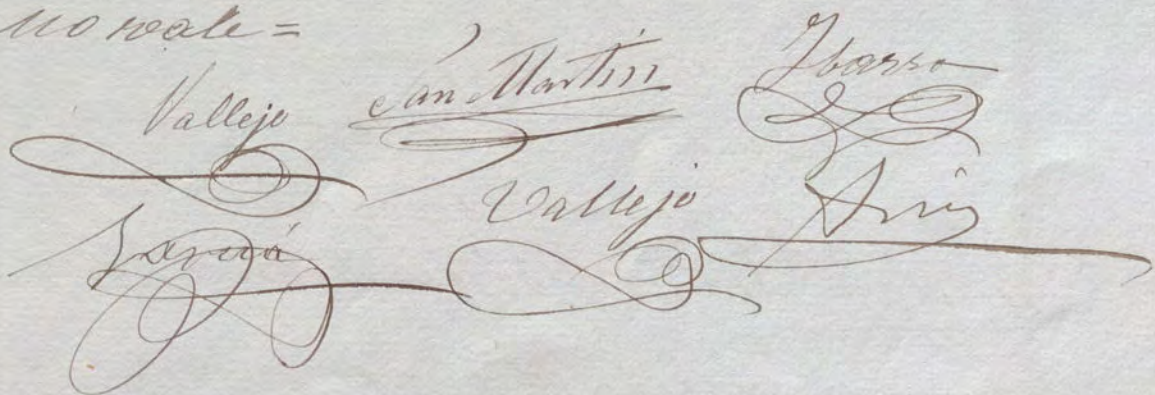 no vale =
Vallejo San Martin Ibarra
García Vallejo